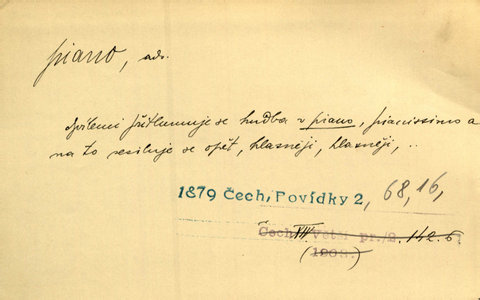 piano, adv.
zpřísení přitlumuje se hudba v piano, pianissimo a
na to sesiluje se opět, hlasněji, hlasněji, ..
1879 Čech, Povídky 2, 68, 16,
Čech VII pr./2. 142. 6.